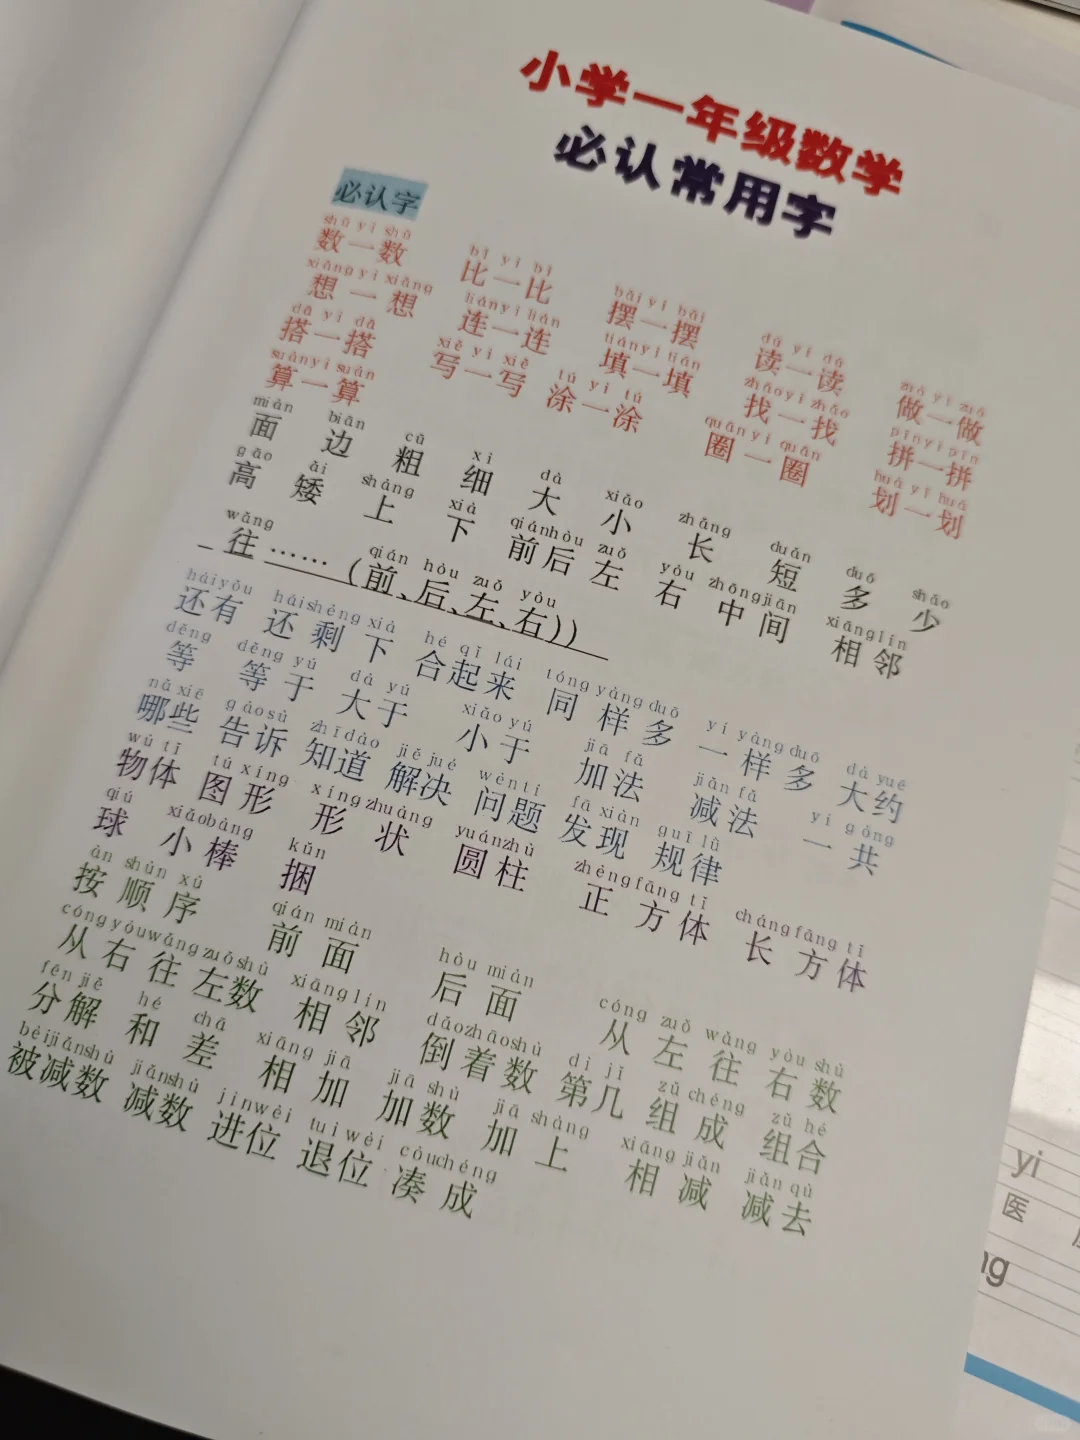 小学一年级数学
必认常用字
必认字
shǔ yi shǔ bǐ yi bǐ bǎi yi bǎi dú yi dú zuò yi zuò
数一数 比一比 摆一摆 读一读 做一做
xiǎng yi xiǎng lián yi lián tián yi tián zhǎo yi zhǎo pīn yi pīn
想一想 连一连 填一填 找一找 拼一拼
dā yi dā xiě yi xiě tú yi tú quān yi quān huá yi huá
搭一搭 写一写 涂一涂 圈一圈 划一划
suàn yi suàn
算一算
miàn biān cū xì dà xiǎo zhǎng duǎn duō shǎo
面 边 粗 细 大 小 长 短 多 少
gāo ǎi shàng xià qián hòu zuǒ yòu zhōng jiān xiāng lín
高 矮 上 下 前后 左 右 中间 相邻
wǎng qián hòu zuǒ yòu
往……（前、后、左、右））
hái yǒu hái shèng xià hé qǐ lái tóng yàng duō yí yàng duō dà yuē
还有 还剩下 合起来 同样多 一样多 大约
děng děng yú dà yú xiǎo yú jiā fǎ jiǎn fǎ yí gòng
等 等于 大于 小于 加法 减法 一共
nǎ xiē gào sù zhī dào jiě jué wèn tí fā xiàn guī lǜ
哪些 告诉 知道 解决 问题 发现 规律
wù tǐ tú xíng xíng zhuàng yuán zhù zhèng fāng tǐ cháng fāng tǐ
物体 图形 形状 圆柱 正方体 长方体
qiú xiǎo bàng kǔn
球 小棒 捆
àn shùn xù qián miàn hòu miàn cóng zuǒ wǎng yòu shǔ
按顺序 前面 后面 从左往右数
cóng yòu wǎng zuǒ shǔ xiāng lín dào zhāo shǔ dì jǐ zǔ chéng zǔ hé
从右往左数 相邻 倒着数 第几 组成 组合
fēn jiě hé chā xiāng jiā jiā shù jiā shàng xiāng jiǎn jiǎn qù
分解 和 差 相加 加数 加上 相减 减去
bèi jiǎn shù jiǎn shù jìn wèi tuì wèi còu chéng
被减数 减数 进位 退位 凑成
yi
医